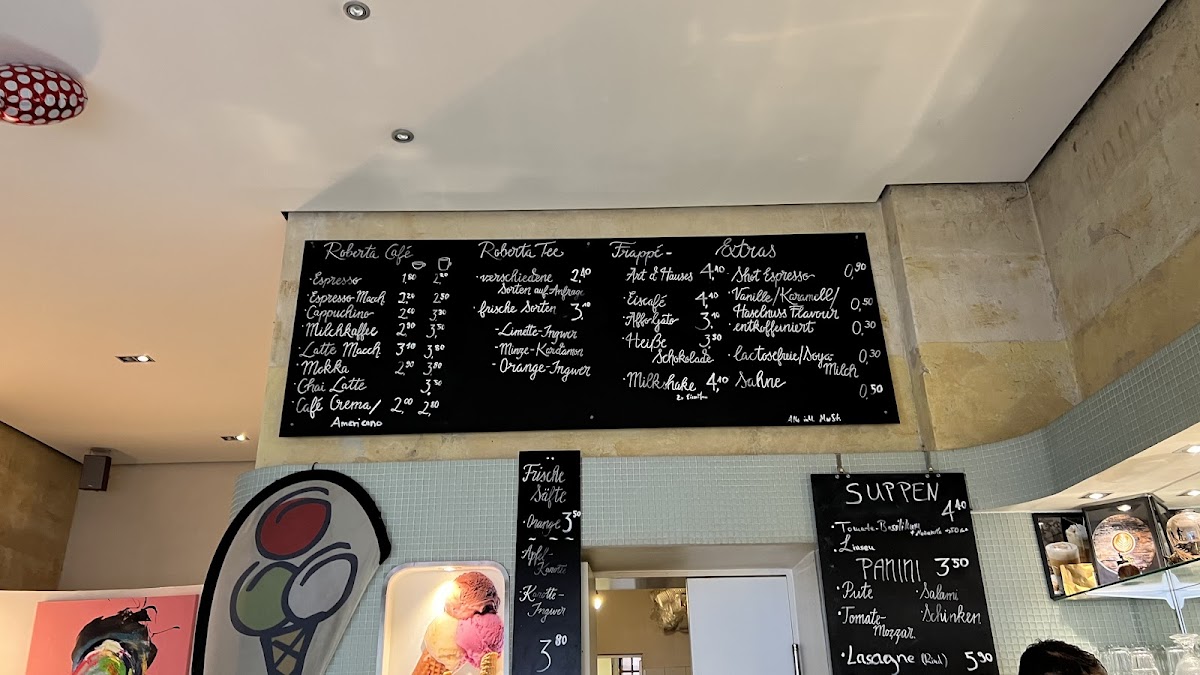 Roberta Café
· Espresso 1,80 2,20
· Espresso Mach 2,20 2,50
· Cappuchino 2,60
· Milchkaffee 2,90 3,50
· Latte Macch 3,10 3,80
· Mokka 2,90 3,80
· Chai Latte
· Café Crema/ 2,00 2,80
Americano
Roberta Tee
· verschiedene 2,10
Sorten auf Anfrage
· frische Sorten 3,10
- Limette-Ingwer
- Minze-Kardamon
- Orange-Ingwer
Frappé -
Art d Hauses 4,10
· Eiscafé 4,10
· Affogato 3,10
· Heiße 3,50
Schokolade
· Milkshake 4,10
Extras
· Shot Espresso 0,90
· Vanille/Karamell/
Haselnuss Flavour 0,50
· entkoffeiniert 0,30
· lactosefreie/Soya- 0,30
Milch
Sahne 0,50
Alle inkl. MwSt.
Frische
Säfte
· Orange 3,50
· Apfel-
Karotte
· Karotte-
Ingwer
3,80
SUPPEN
4,40
· Tomate-Basilikum
· Linsen
PANINI 3,50
· Pute · Salami
· Tomate- · Schinken
Mozzar.
· Lasagne (Rind) 5,90